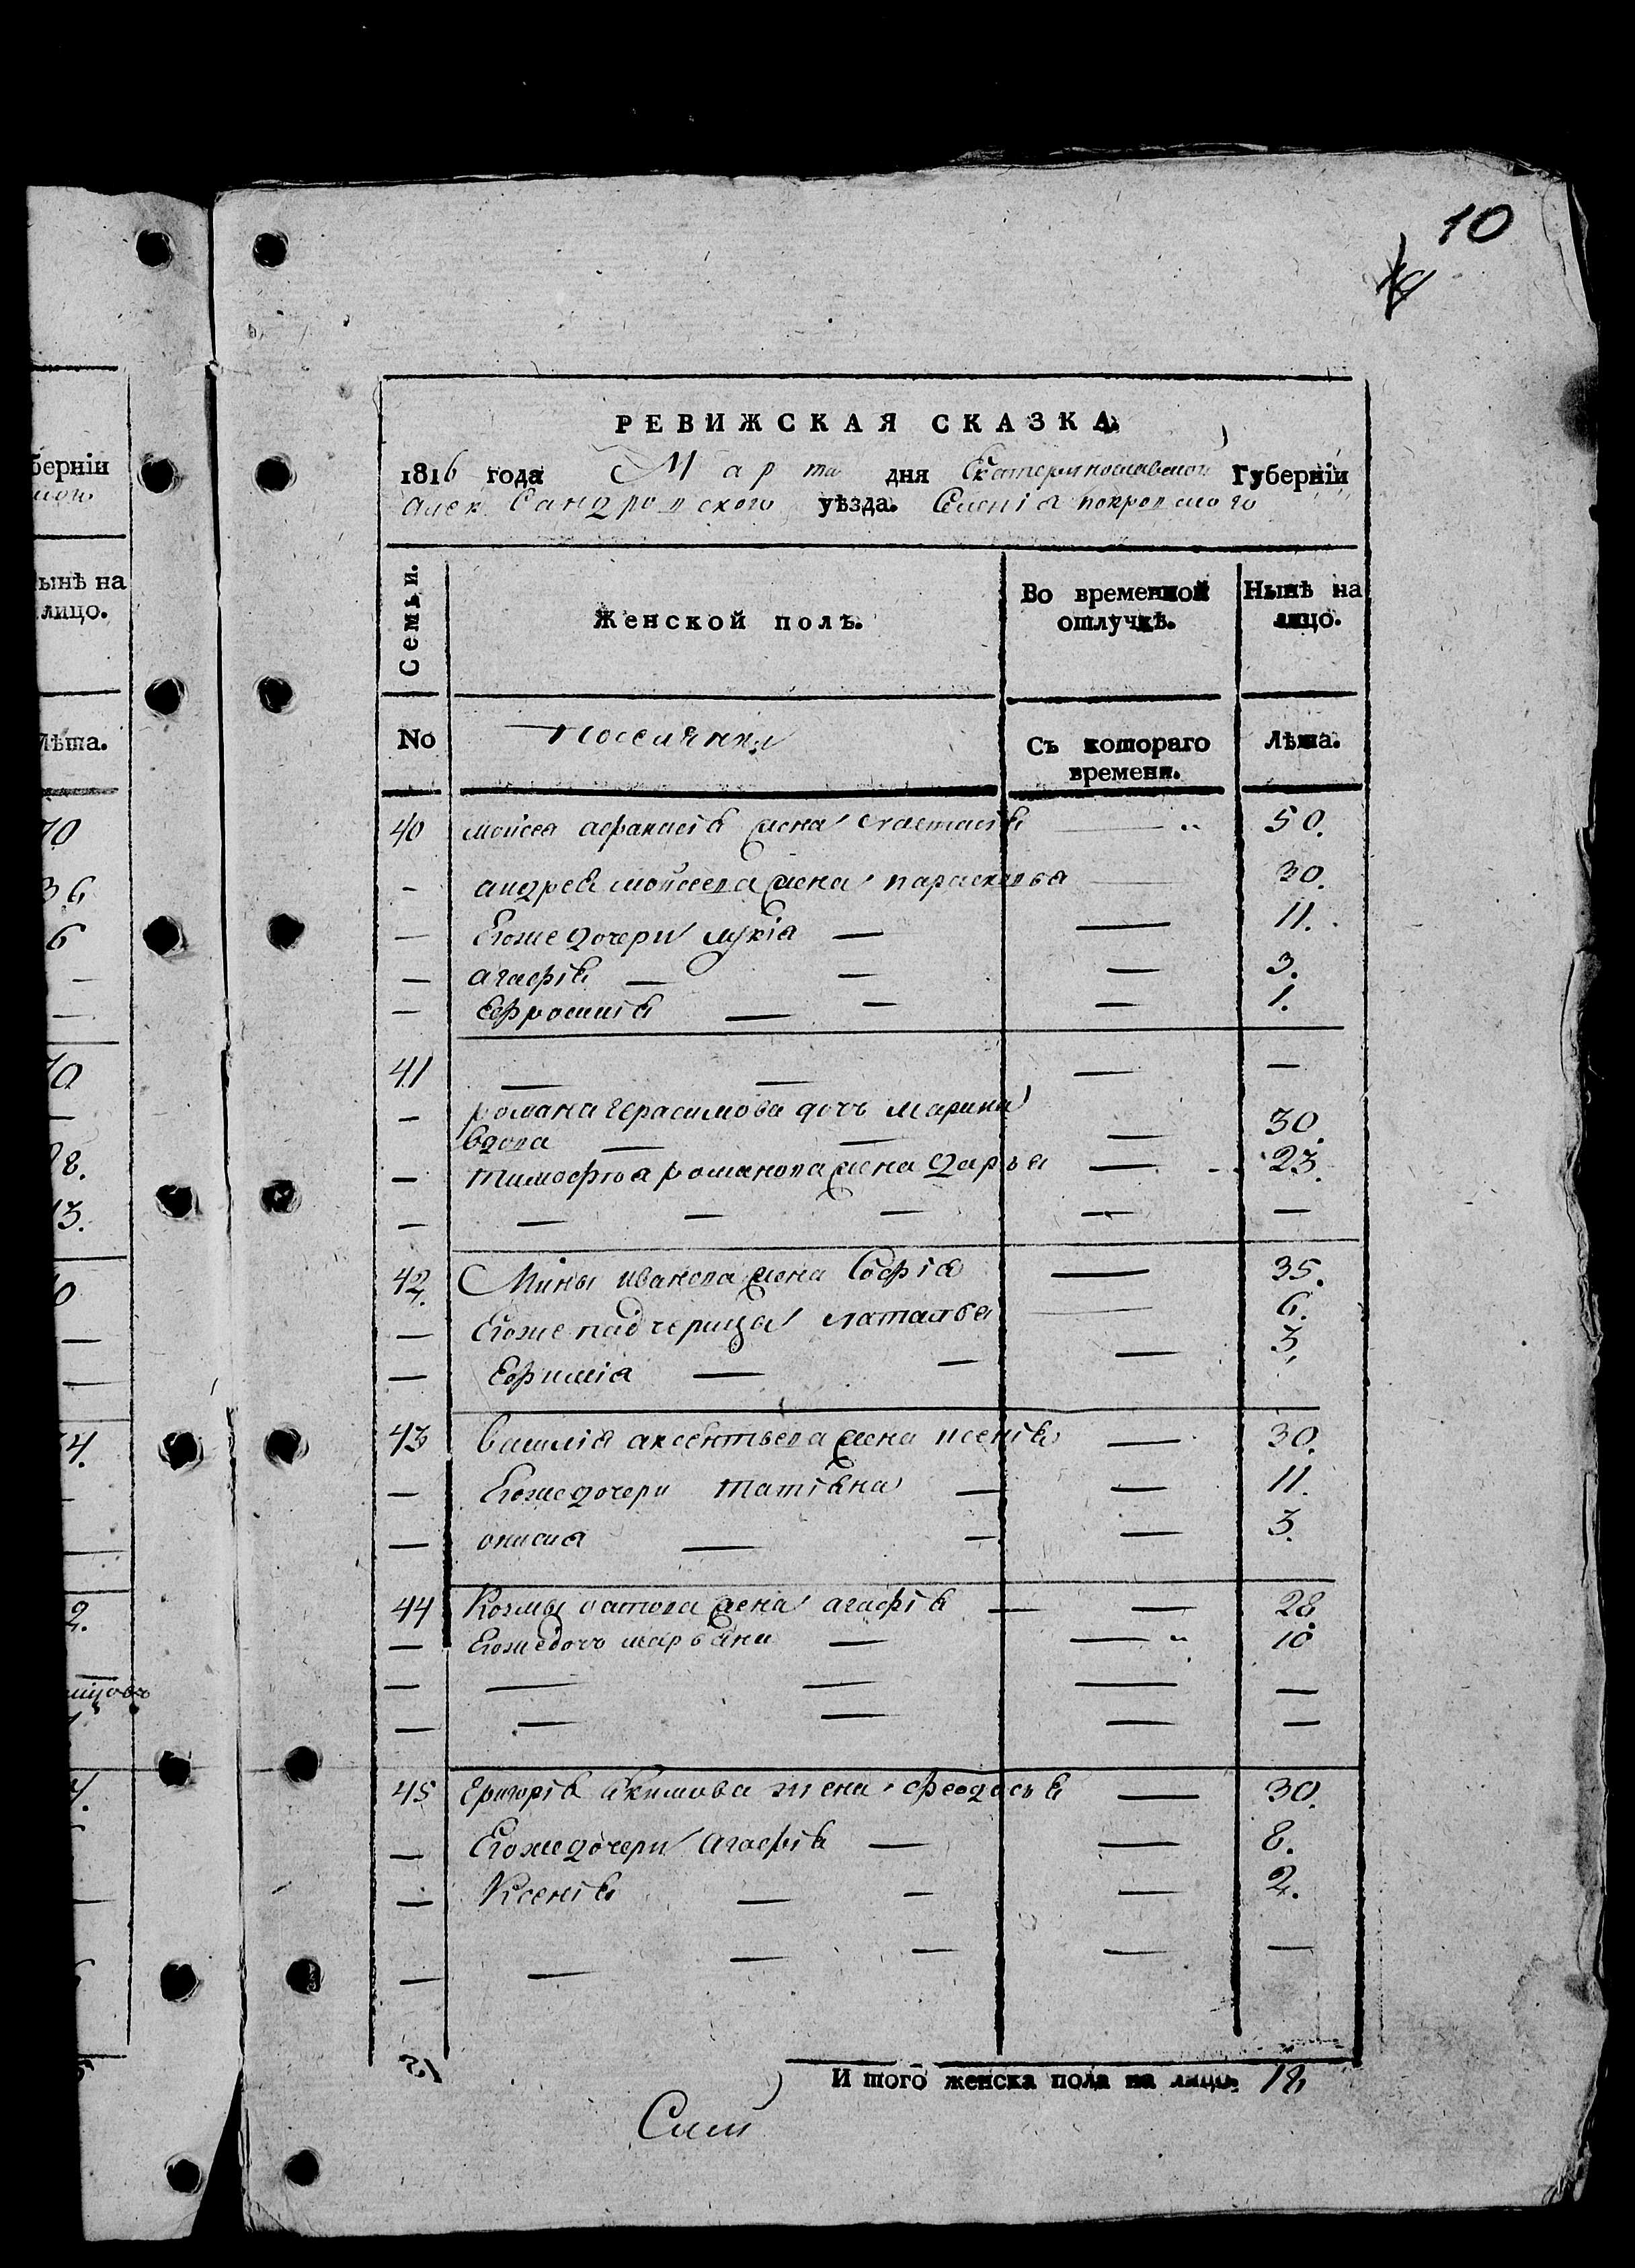 10
РЕВИЖСКАЯ СКАЗКА
1816 года Марта дня Екатеринославской Губерніи
Александровского уѣзда. Селенія покровского
Семьи.
Женской полъ.
Во временной отлучкѣ.
Нынѣ на лицо.
No
Съ котораго времени.
Лѣта.
40 мойсея афанасія жена настасія — 50.
— андрея мойсеева жена парасковья — 30.
— Егоже дочери лукія — — 11.
— агафія — — — 3.
— Ефросинія — — — 1.
41 — — — —
— романа герасимова дочь марина
вдова — — — 30.
— тимофея романова жена дарья — 23.
— — — — — —
42. Мины иванова жена Софія — 35.
— Егоже падчерицы наталья — 6.
— Ефимія — — — 3.
43 василія аксентьева жена ксенія — 30.
— Егоже дочери татіяна — — 11.
— онисия — — — 3.
44 Козмы жена агафія — — 28
— Егоже дочь марьяна — — 10
— — — — —
— — — — —
45 григорія якимова жена феодосья — 30.
— Егоже дочери агафія — — 8.
— Ксенія — — — 2.
— — — — — —
И того женска пола на лицо. 18
берніи
ынѣ на
лицо.
Лѣта.